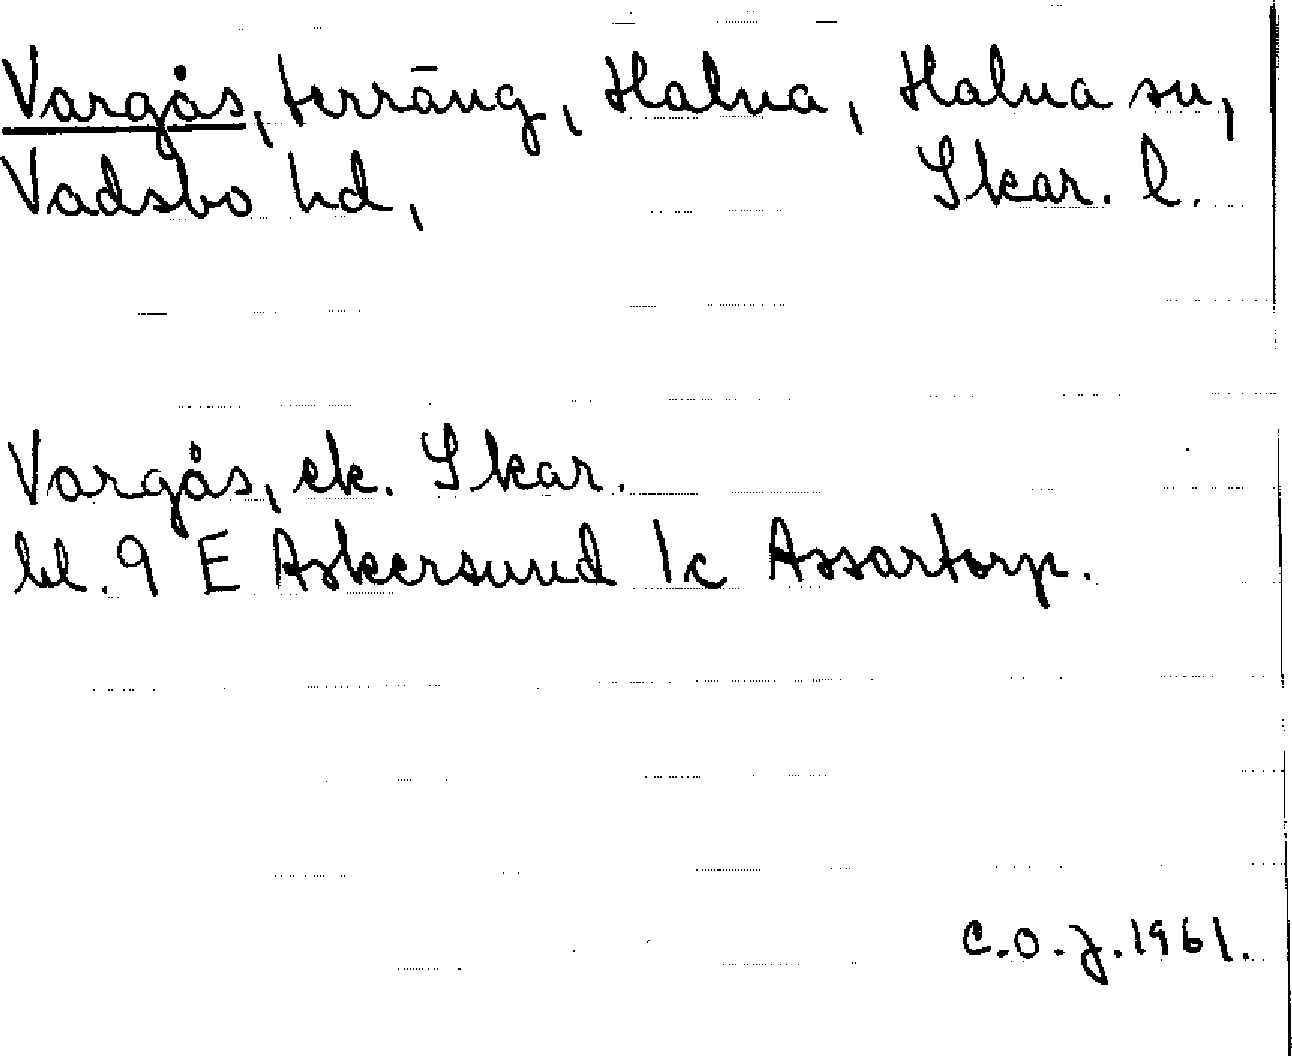 Vargås, terräng, Halna, Halna sn,
Vadsbo hd, Skar. l.
Vargås, ek. Skar.
bl. 9 E Askersund 1c Assartorp.
C.O.J. 1961.